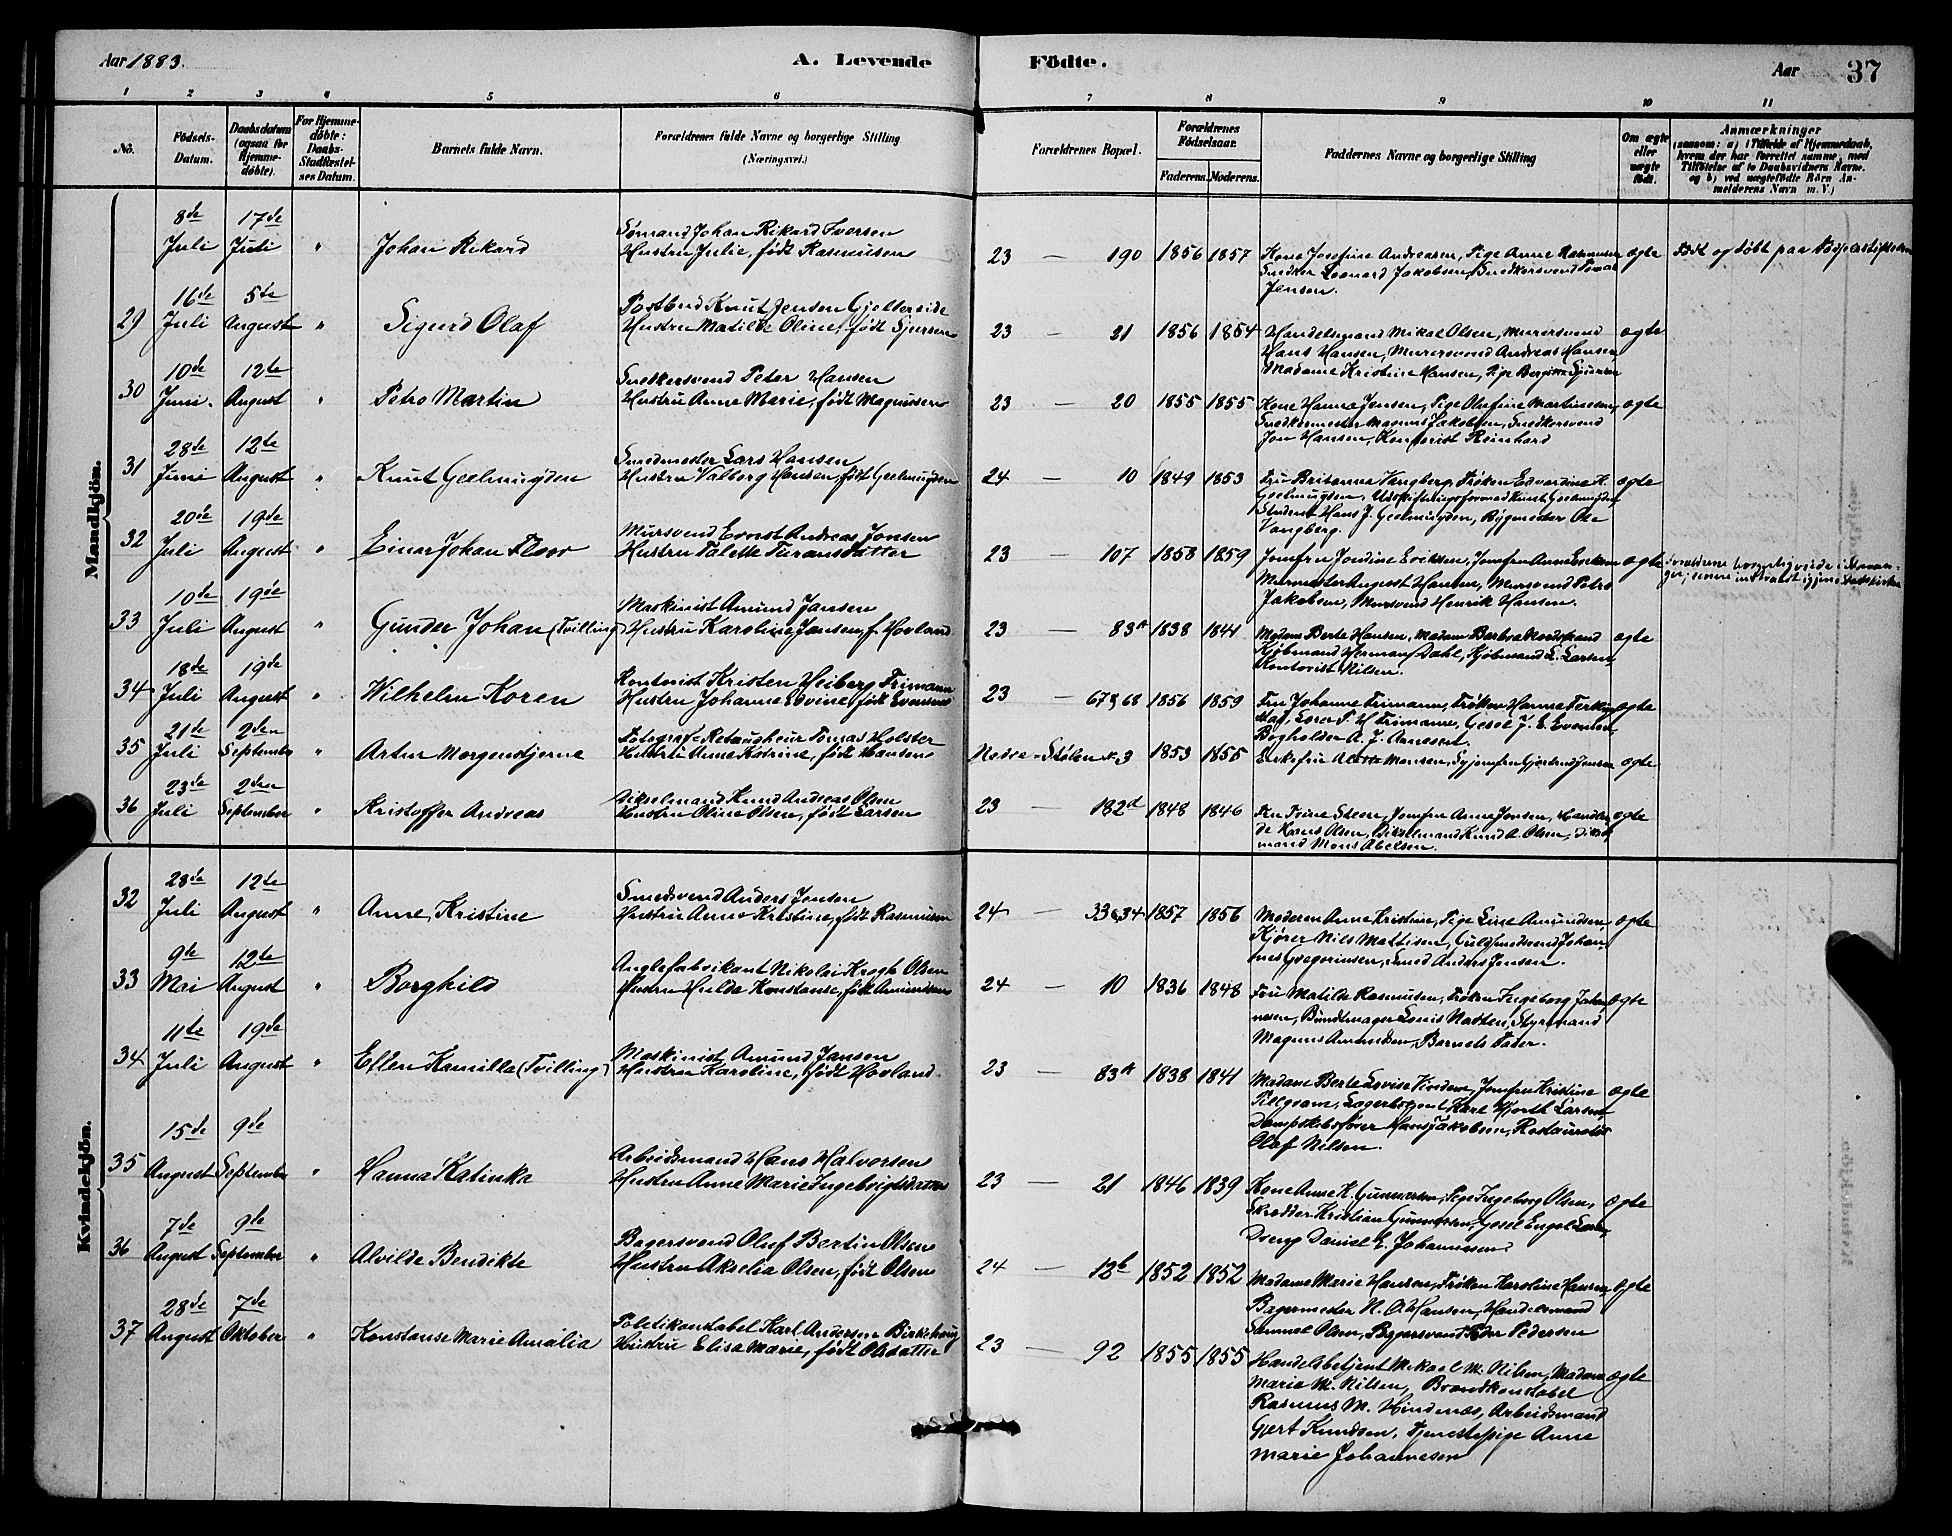 Aar 1883.
A. Levende
Födte.
Aar
37
1 2 3 4 5 6 7 8 9 10 11
No.
Födsels-Datum.
Daabsdatum (ogsaa for Hjemme-döbte).
For Hjemme-döbte: Daabs-Stadfæstel-ses Datum.
Barnets fulde Navn.
Forældrenes fulde Navne og borgerlige Stilling
(Næringsvei.)
Forældrenes Bopæl.
Forældrenes Födselsaar.
Faderens. Moderens.
Faddernes Navne og borgerlige Stilling
Om ægte eller uægte födt.
Anmærkninger
(saasom: a) i Tilfælde af Hjemmedaab, hvem der har forrettet samme, med Tilföielse af to Daabsvidners Navne, og b) ved uægtefödte Börn Anmelderens Navn m. V.)
Mandkjön.
8de Juli 17de Juli " Johan Rikard
Sömand Johan Rikard Iversen
Hustru Julie, født Rasmussen
23 — 190 1856 1857
Kone Josefine Andreasen, Pige Anne Rasmussen
Snedker Leonard Jakobsen, Snedkersvend Tomas
Jensen.
ægte
Født og døbt paa
29 16de Juli 5te August " Sigurd Olaf
Postbud Knut Jensen Gjelleside
Hustru Matilde Oline, født Sjursen
23 — 21 1856 1854
Handelsmand Mikal Olsen, Murersvend
Hans Hansen, Murersvend Andreas Hansen
Madame Kristine Hansen, Pige Bergitte Sjursen
ægte
30 10de Juni. 12te August " Petro Martin
Snedkersvend Peter Hansen
Hustru Anne Marie, født Magnussen
23 — 20 1855 1855
Kone Hanna Jensen, Pige Olufine Martinsen,
Snedkermester Magnus Jakobsen, Snedkersvend
Jon Hansen, Kontorist Reinhard
ægte
31 28de Juni 12te August " Knut Geelmuyden
Smedmester Lars Hansen
Hustru Valborg Hansen, født Geelmuyden
24 — 10 1849 1853
Fru Britanna Vangberg, Frøken Edvardine K.
Geelmuyden, Udskiftningsformand Knut Geelmuyden
Student Hans J. Geelmuyden, Bygmester Ole
Vangberg.
ægte
32 20de Juli 19de August " Einar Johan Floor
Mursvend Ernst Andreas Jonsen
Hustru Talette Turansdatter
23 — 107 1858 1859
Jomfru Jondine Eriksen, Jomfru Anne Eriksen
Murmester August Hansen, Mursvend Peter
Jakobsen, Mursvend Henrik Hansen.
ægte
33 10de Juli 19de August " Gunder Johan (Tvilling)
Maskinist Amund Jansen
Hustru Karoline Jansen, f. Hovland
23 — 83a 1838 1841
Madam Berte Hansen, Madam Barbra Nordstrand
Kjøbmand Herman Dahl, Kjøbmand L. Larsen,
Kontorist Nilsen.
ægte
34 18de Juli 19de August " Wilhelm Koren
Kontorist Kristen Heiberg Frimann
Hustru Johanne Edvine, født Evensen
23 — 67 & 68 1856 1859
Fru Johanne Frimann, Frøken Hanna
Bogholder A. J. Arnesen.
ægte
35 21de Juli 2den September " Artur Morgenstjerne
Fotograf-Retoucheur Tomas Holster
Hustru Anne Katrine, født Hansen
Nedre - Stølen No 3 1853 1855
Enkefru Alette Monsen, Syjomfru Jensen
ægte
36 23de Juli 2den September " Kristoffer Andreas
Dikselmand Knud Andreas Olsen
Hustru Oline Olsen, født Larsen
23 — 182d 1848 1846
Fru Trine Steen, Jomfru Anne Jonsen, Handlende
Hans Olsen, Dikselmand Knud A. Olsen, Diksel-
mand Mons Abelsen.
ægte
Kvindekjön.
32 23de Juli 12te August " Anne Kristine
Smedsvend Anders Jonsen
Hustru Anne Kristine, født Rasmussen
24 — 33 & 34 1857 1856
Moderen Anne Kristine, Pige Line Amundsen,
Kjører Nils Mattisen, Guldsmedsvend Johan-
nes Gregoriusen, Smed Anders Jensen.
ægte
33 9de Mai 12te August " Borghild
Anglefabrikant Nikolai Krogh Olsen
Hustru Hulda Konstanse, født Amundsen
24 — 10 1836 1848
Fru Matilde Rasmussen, Frøken Ingeborg Johan-
nesen, Bundtmager Louis Natten, Styrmand
Magnus Amundsen, Barnets Fader.
ægte
34 11te Juli 19de August " Ellen Kamilla (Tvilling)
Maskinist Amund Jansen
Hustru Karoline, født Hovland.
23 — 83a 1838 1841
Madame Berte Lovise, Jomfru Kristine
Lagerbetjent Karl Hjorth Larsen,
Dampskibsfører Hans Jakobsen, Restauratør
Olaf Nilsen.
ægte
35 15de August 9de September " Hanna Katinka
Arbeidsmand Hans Halvorsen
Hustru Anne Marie Ingebrigtsdatter
23 — 21 1846 1839
Kone Anne K. Gunnarsen, Pige Ingeborg Olsen,
Skredder Kristian Gunnarsen, Gesel Engel
Dreng Daniel E. Johannesen
ægte
36 7de August 9de September " Alvilde Bendikte
Bagersvend Oluf Bertin Olsen
Hustru Akselia Olsen, født Olsen
24 — 12b 1852 1852
Madame Marie Hansen, Frøken Karoline Hansen
Bagermester N. O. Hansen, Handelsmand
Samuel Olsen, Bagersvend Peder Pedersen
ægte
37 28de August 7de Oktober " Konstanse Marie Amalia
Politikonstabel Karl Andersen Birkehaug
Hustru Elisa Marie, født Olsdatter
23 — 92 1855 1855
Handelsbetjent Mikael M. Nilsen, Madam
Marie M. Nilsen, Brandkonstabel
Rasmus M. Hindenæs, Arbeidsmand
Gjert Knudsen, Tjenestepige Anne
Marie Johannesen
ægte